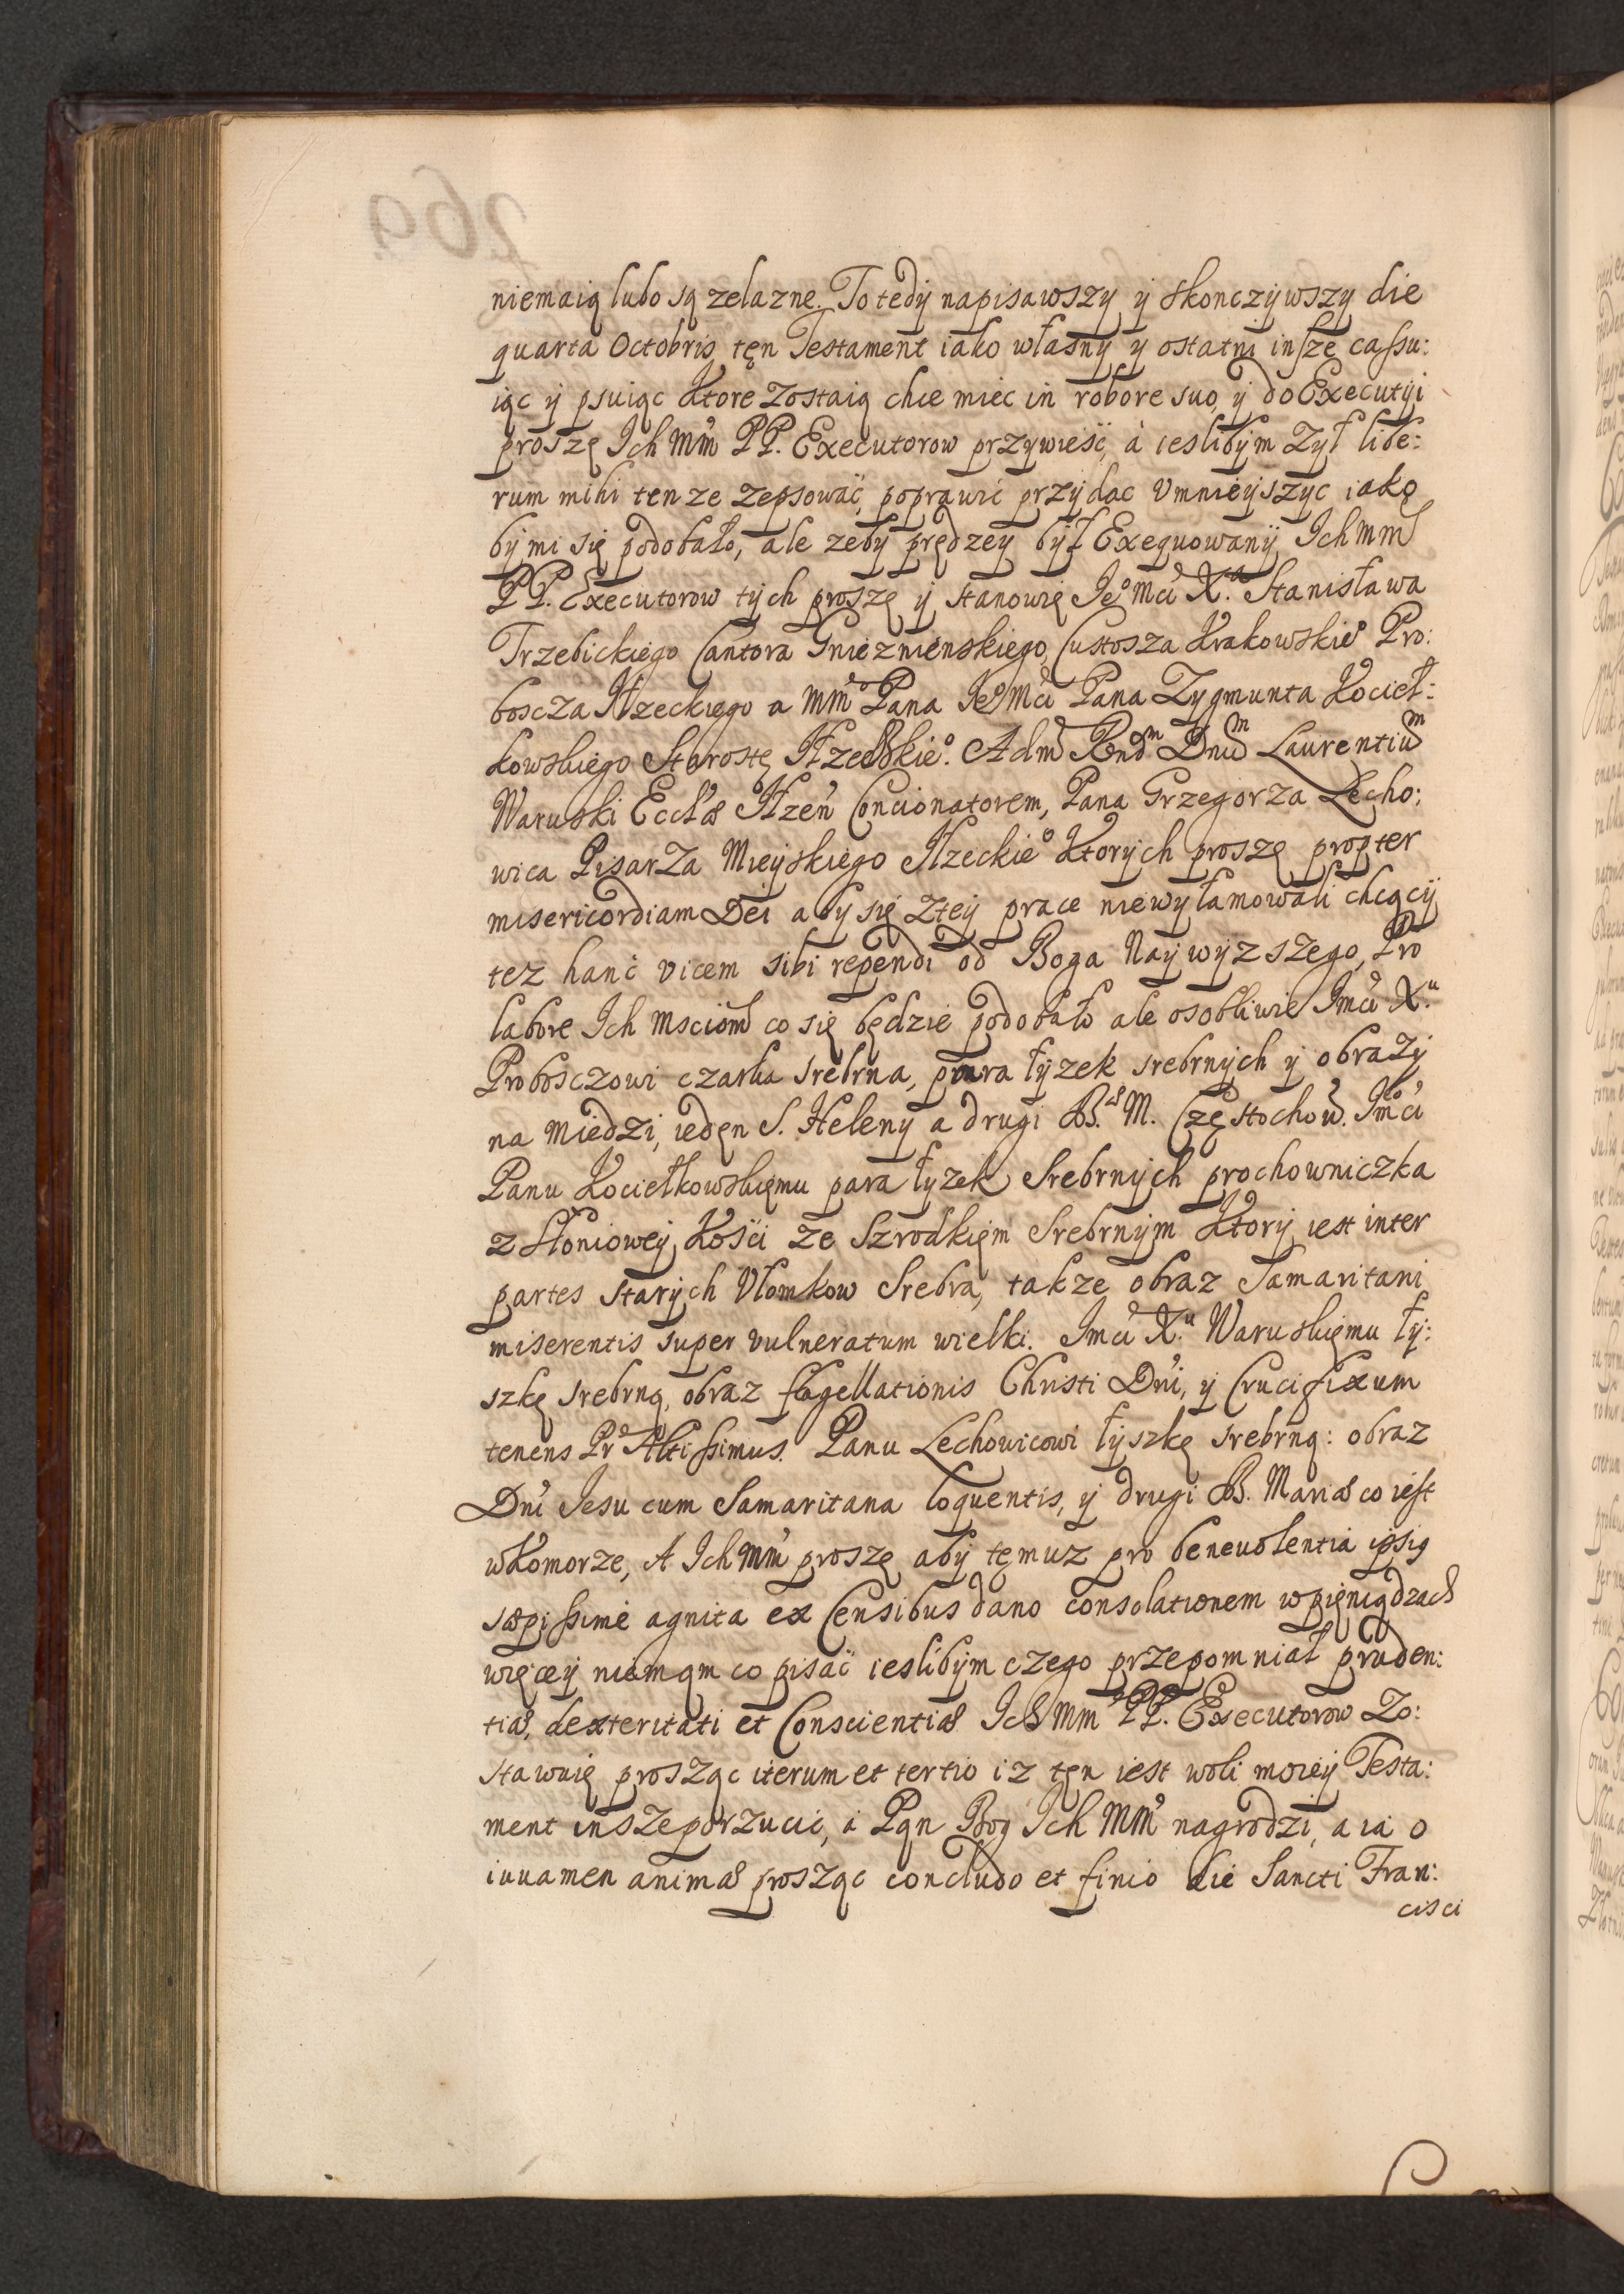 niemaią lubo są zelazne. To tedy napisawszy y skonczywszy die
quarta Octobris tęn Testament iako własny y ostatni insze cassu:
iąc y psuiąc ktore zostaią chce miec in robore suo, y do Executyi
proszę Ich Mm PP. Executorow przywieść, à ieslibym zył libe:
rum mihi ten ze zepsować, poprawić przydac vmnieyszyc iako
by mi się podobało, ale zeby prędzey był Exequowany Ich Mm
PP. Executorow tych proszę y stanowię Ieo Mci X.a Stanisława
Trzebickiego Cantora Gnieznienskiego, Custosza Krakowskieo Pro:
boscza Ilzeckiego a mm Pana Ieo Mci Pana Zygmunta Kociel:
kowskiego Starostę Ilzeckieo. Adm Rndm Dnum Laurentium
Waruski Eccl'æ Ilzen' Concionatorem, Pana Grzegorza Lecho:
wica Pisarza Mieyskiego Ilzeckieo ktorych proszę propter
misericordiam Dei aby się z tey prace niewyłamowali chcący
tez hanc vicem sibi rependi od Boga Naywyzszego, Pro
labore Ich Msciom co się będzie podobało ale osobliwie Imci X.u
Probosczowi czarka srebrna, para łyzek srebrnych y obrazy
na miedzi, iedęn S. Heleny a drugi B.æ M. Częstochow. Imci
Panu Kociełkowskięmu para łyzek Srebrnych prochowniczka
z słoniowey kości ze szrodkięm Srebrnym ktory iest inter
partes starych vłomkow Srebra, takze obraz Samaritani
miserentis super vulneratum wielki. Imci X.u Waruskięmu ły:
szkę srebrną, obraz flagellationis Christi Dni, y Crucifixum
tenens Pr Altissimus. Panu Lechowicowi łyszkę srebrną: obraz
Dni Jesu cum Samaritana loquentis, y drugi B. Mariæ co iest
w komorze, A Ich Mm proszę aby tęmuz pro beneuolentia
sæpissimè agnita ex Censibus dano consolationem w pięniądzach
więcey niemąm co pisać ieslibym czego przepomniał pruden:
tiæ, dexteritati et Conscientiæ Ich Mm PP. Executorow zo:
stawuię prosząc iterum et tertio iz tęn iest woli moiey Testa:
ment insze porzucić, à Pąn Bog Ich Mm nagrodzi, a ia o
iuuamen animæ prosząc concludo et finio die Sancti Fran:
cisci